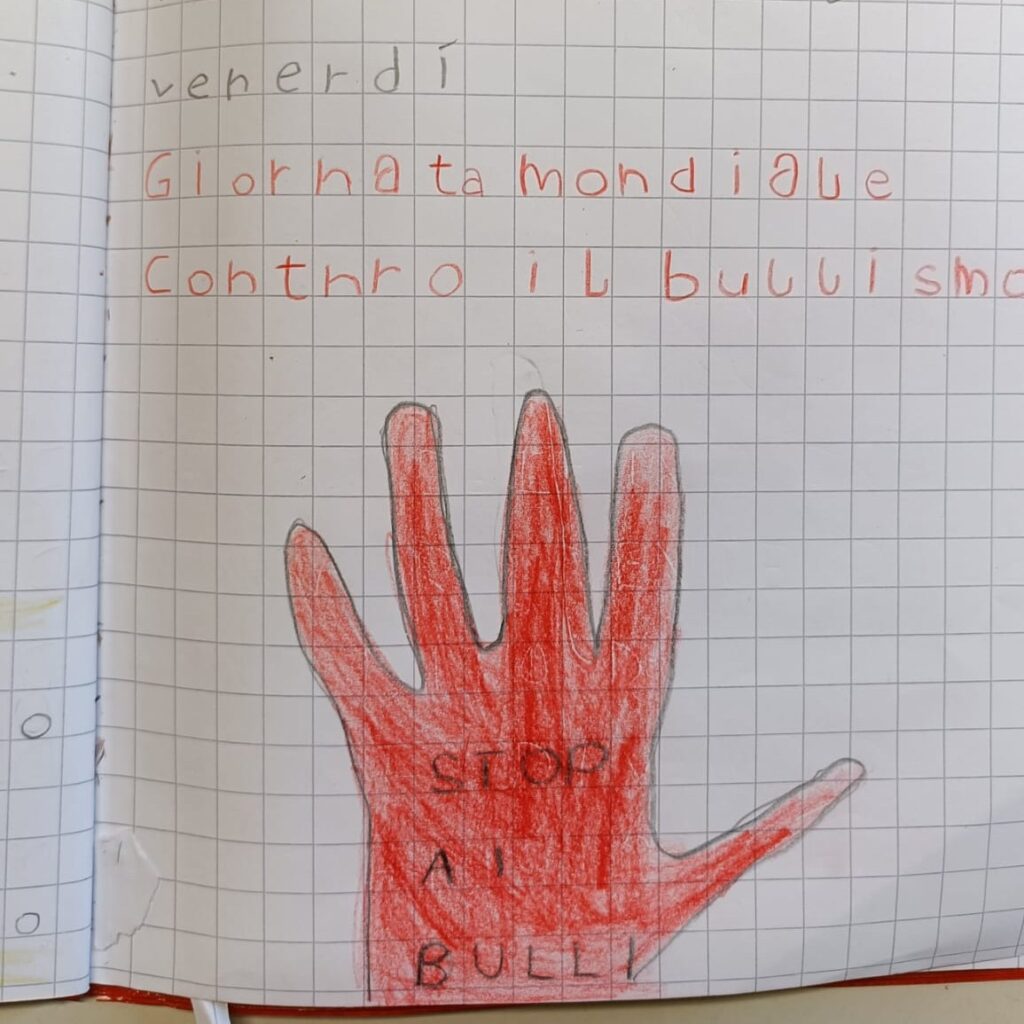 venerdí
Giornata mondiale
Conthro il bullismo
STOP
AI
BULLI